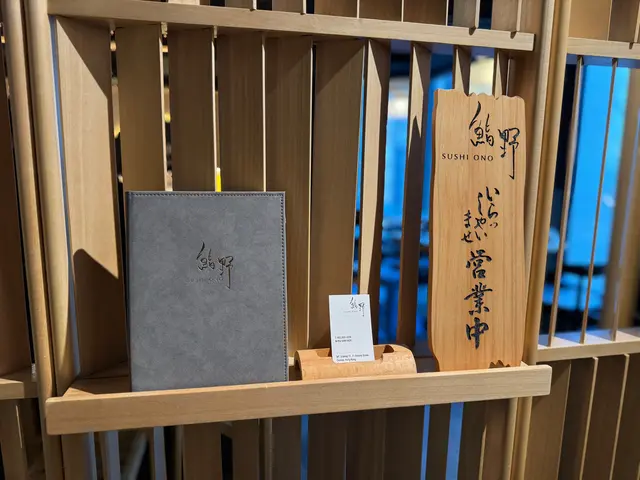 鮨野
鮨野
SUSHI ONO
いらっ
しゃい
ませ
営業中
鮨野